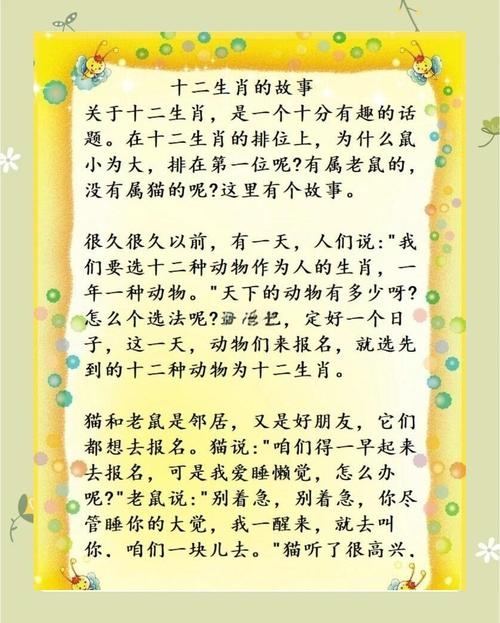 十二生肖的故事
关于十二生肖，是一个十分有趣的话
题。在十二生肖的排位上，为什么鼠
小为大，排在第一位呢?有属老鼠的，
没有属猫的呢?这里有个故事。
很久很久以前，有一天，人们说:"我
们要选十二种动物作为人的生肖，一
年一种动物。"天下的动物有多少呀?
怎么个选法呢?，定好一个日
子，这一天，动物们来报名，就选先
到的十二种动物为十二生肖。
猫和老鼠是邻居，又是好朋友，它们
都想去报名。猫说:"咱们得一早起来
去报名，可是我爱睡懒觉，怎么办
呢?"老鼠说:"别着急，别着急，你尽
管睡你的大觉，我一醒来，就去叫
你．咱们一块儿去。"猫听了很高兴．